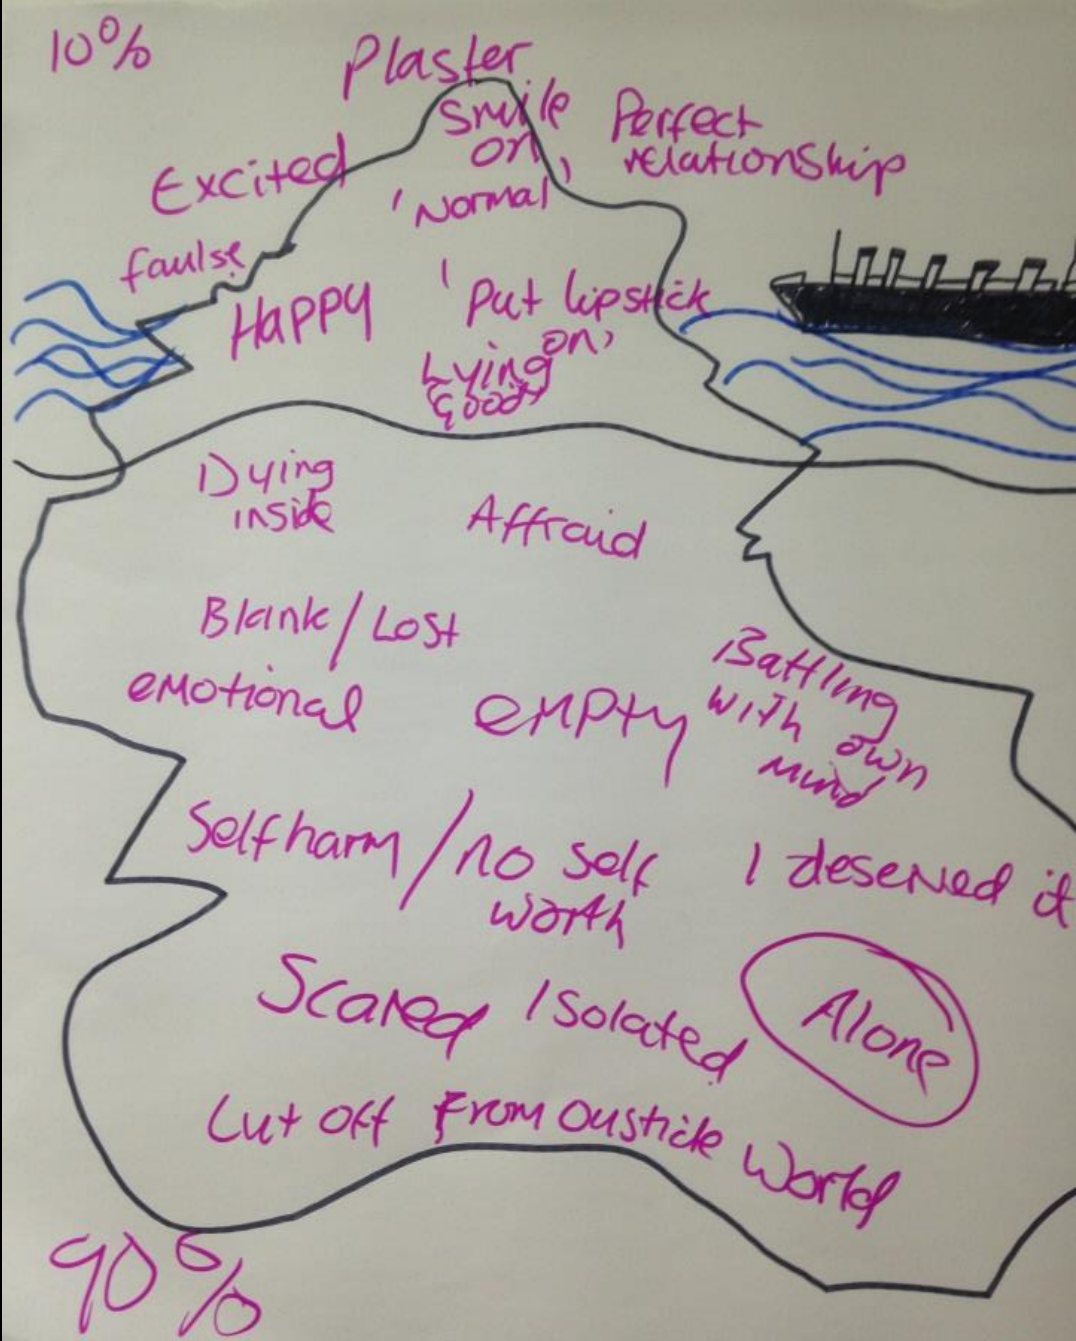 10%
Plaster
smile
on
'Normal'
Perfect
relationship
Excited
faulse
Happy
'Put lipstick
on'
Lying
Good
Dying
inside
Affraid
Blank/Lost
emotional
empty
Battling
with own
mind
Selfharm/no self
worth
I deserved it
Scared Isolated
Alone
Cut off From Oustide World
90%